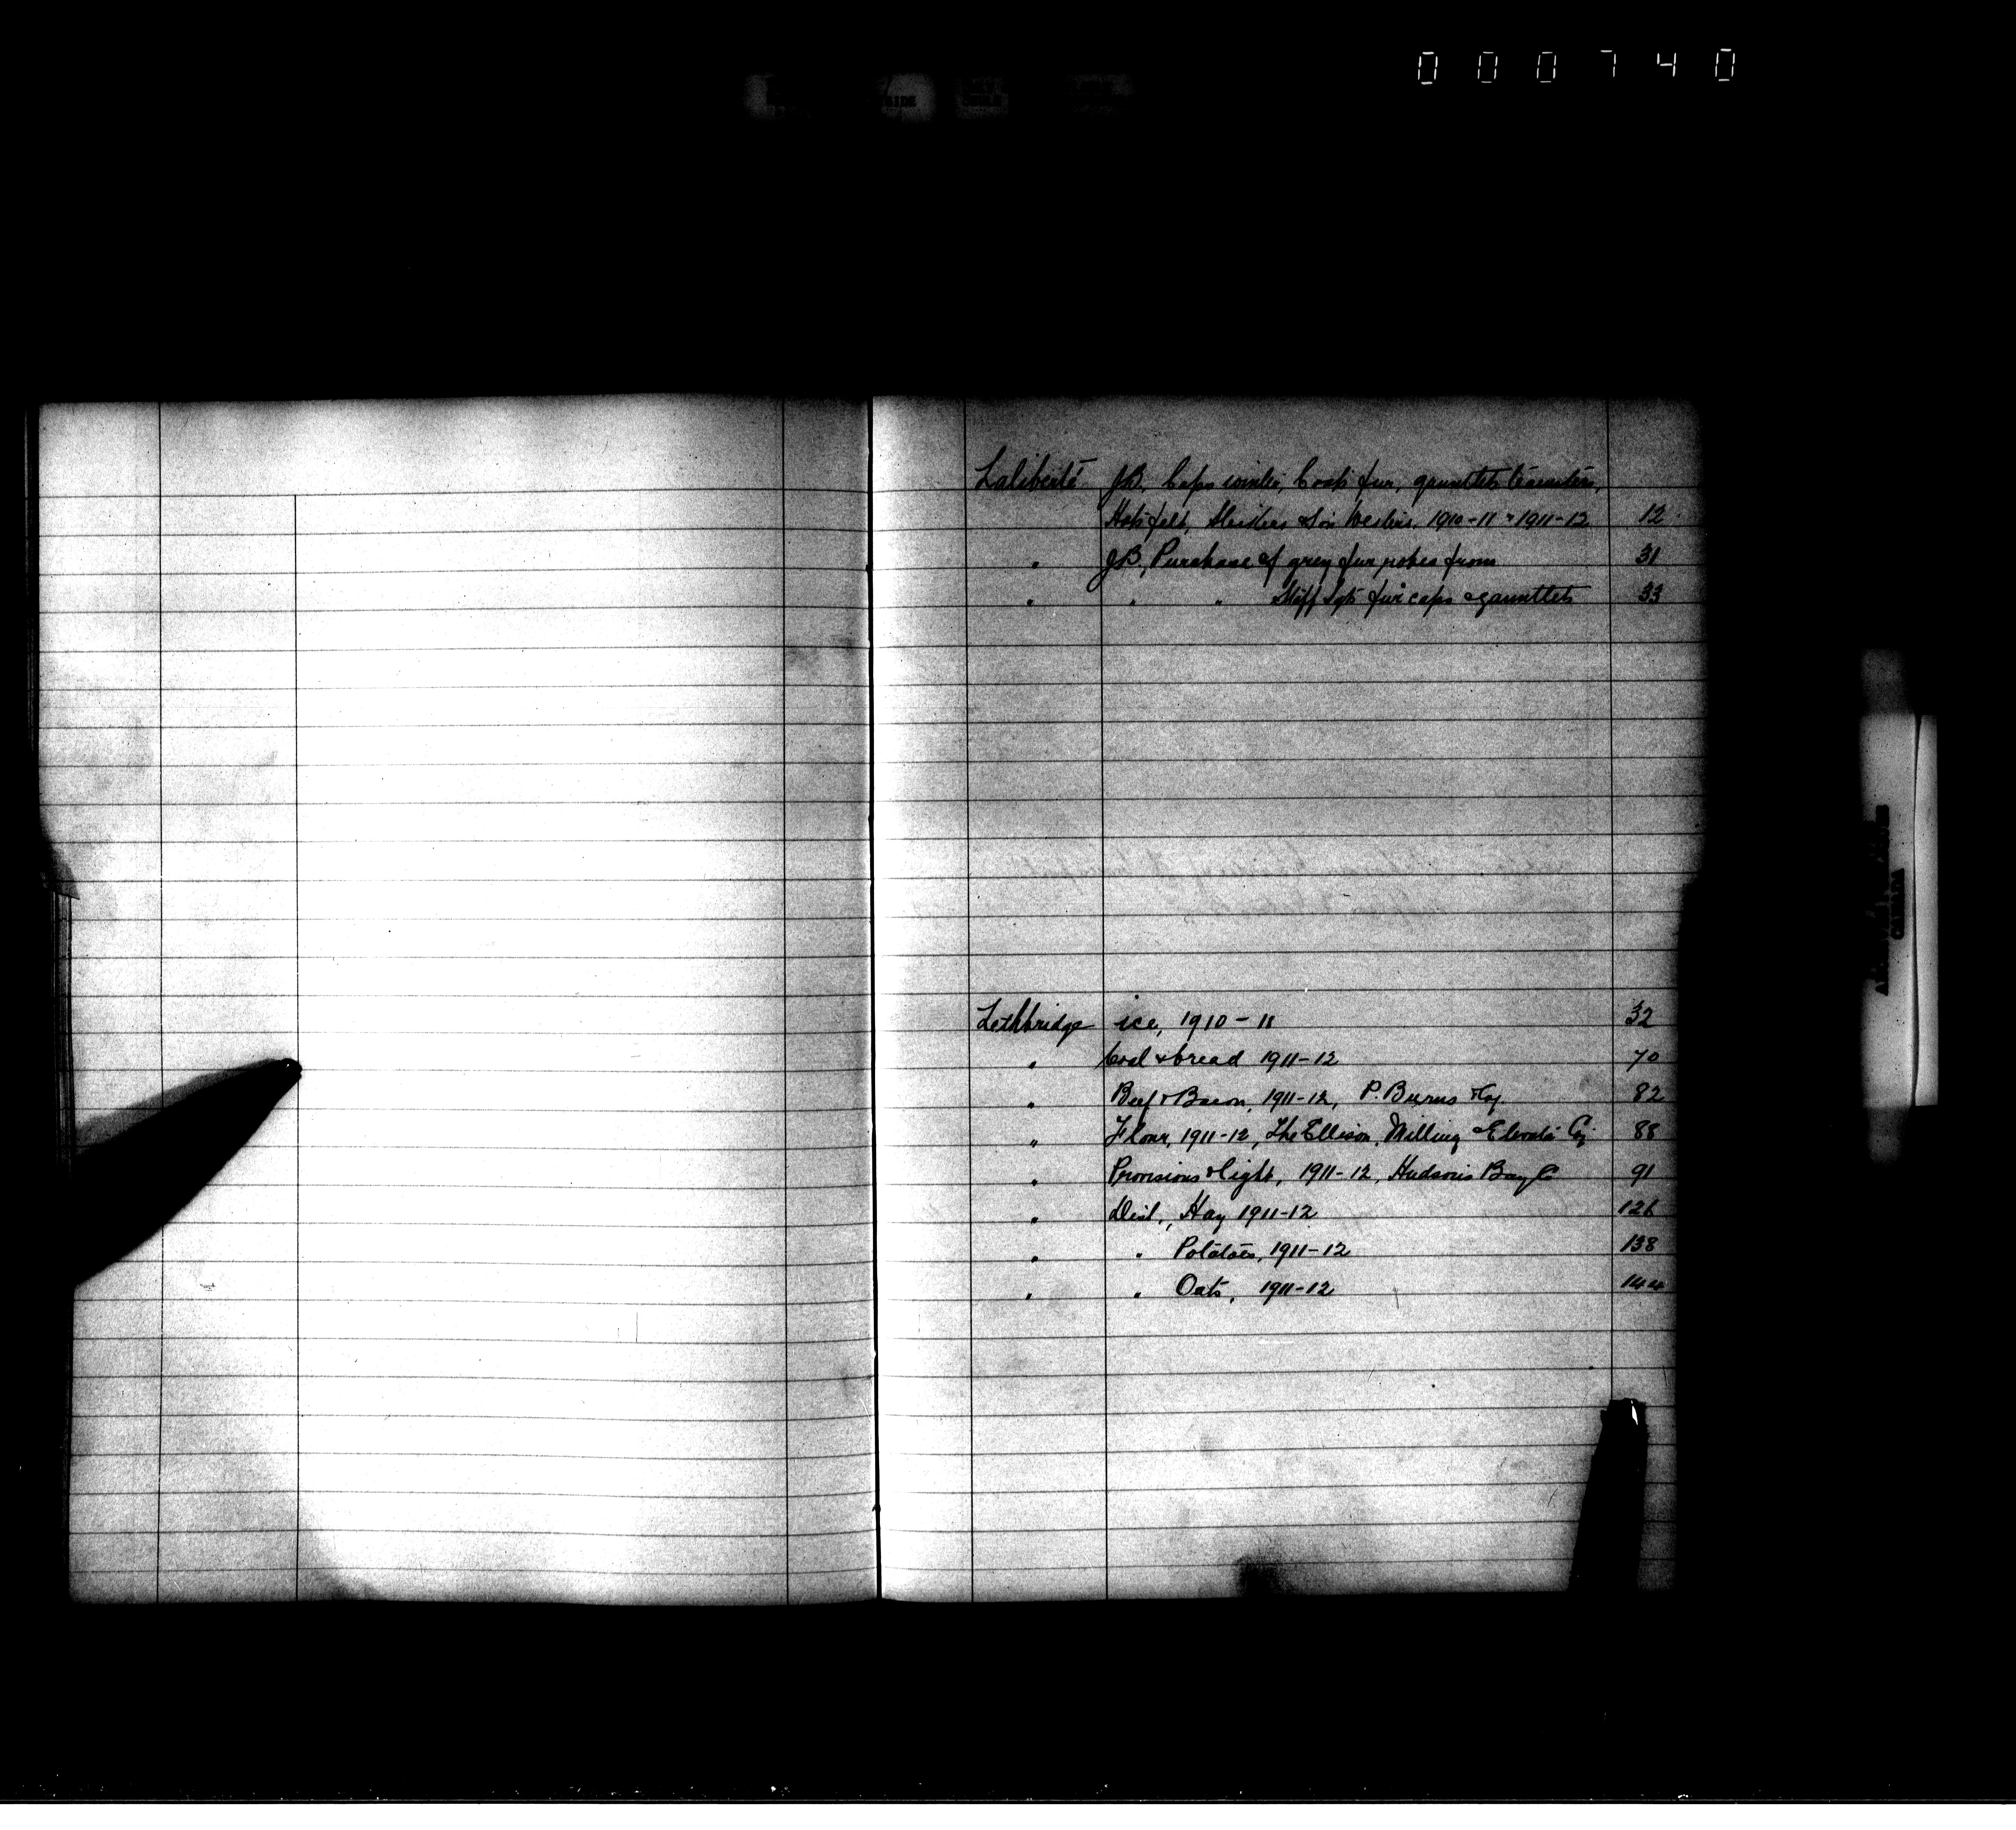 000740
Laliberté J.B. Caps winter, Coats fur, gauntlets teamsters,
Hats felt, 1910-11 & 1911-12 12
" J.B., Purchase of grey fur robes from 31
" " " Staff Sgts fur caps & gauntlets 33
Lethbridge ice, 1910-11 32
" Coal & bread 1911-12 70
" Beef & Bacon, 1911-12, P. Burns & Coy. 82
" Flour, 1911-12, The Ellison Milling & Elevator Coy 88
" Provisions & light, 1911-12, Hudson's Bay Co 91
" Dist., Hay 1911-12 126
" " Potatoes, 1911-12 138
" " Oats, 1911-12 144
CANADA